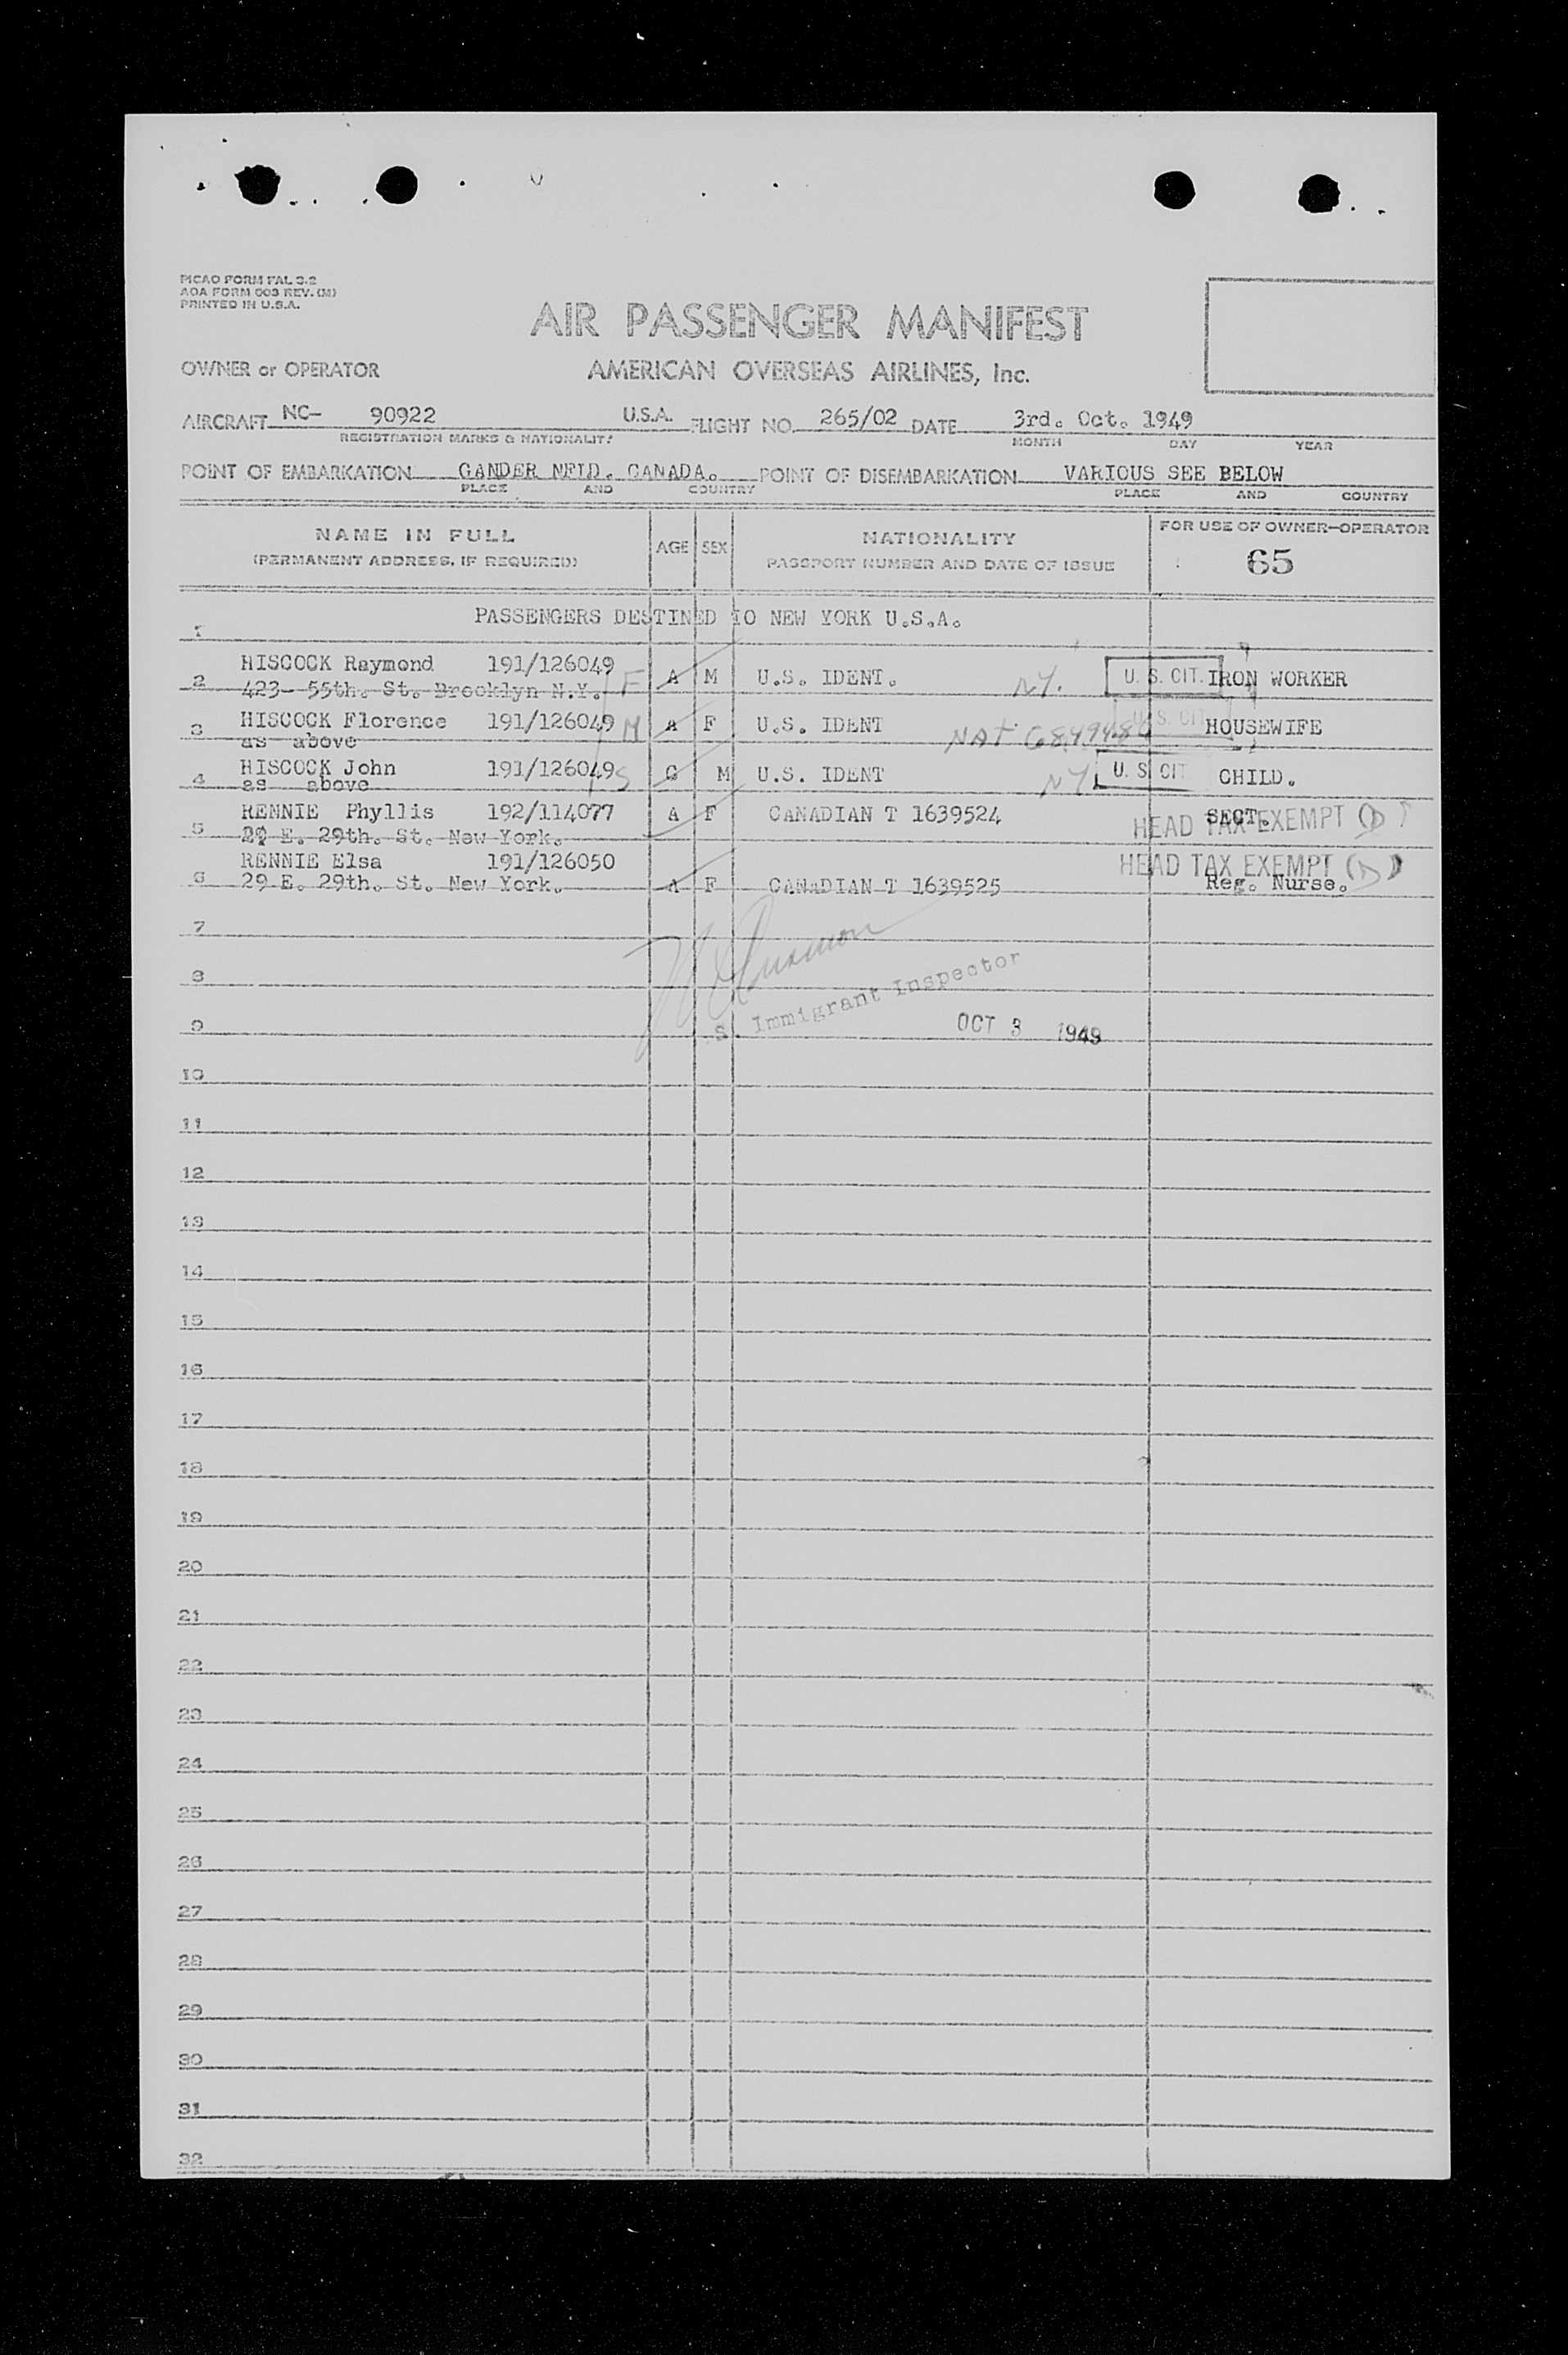 PICAO FORM FAL 3.2
AOA FORM 003 REV. (M)
PRINTED IN U.S.A.
AIR PASSENGER MANIFEST
OWNER or OPERATOR AMERICAN OVERSEAS AIRLINES, Inc.
AIRCRAFT NC- 90922 U.S.A. FLIGHT NO. 265/02 DATE 3rd. Oct. 1949
REGISTRATION MARKS & NATIONALITY MONTH DAY YEAR
POINT OF EMBARKATION GANDER NFLD. CANADA. POINT OF DISEMBARKATION VARIOUS SEE BELOW
PLACE AND COUNTRY PLACE AND COUNTRY
NAME IN FULL AGE SEX NATIONALITY FOR USE OF OWNER-OPERATOR
(PERMANENT ADDRESS, IF REQUIRED) PASSPORT NUMBER AND DATE OF ISSUE 65
1 PASSENGERS DESTINED TO NEW YORK U.S.A.
2 HISCOCK Raymond 191/126049 F A M U.S. IDENT. NY. U. S. CIT. IRON WORKER
423- 55th. St. Brooklyn N.Y.
3 HISCOCK Florence 191/126049 M A F U.S. IDENT NAT U. S. CIT HOUSEWIFE
as above
4 HISCOCK John 191/126049 S C M U.S. IDENT NY U. S. CIT CHILD.
as above
5 RENNIE Phyllis 192/114077 A F CANADIAN T 1639524 SECT. HEAD TAX EXEMPT
29 E. 29th. St. New York.
RENNIE Elsa 191/126050 HEAD TAX EXEMPT
6 29 E. 29th. St. New York. A F CANADIAN T 1639525 Reg. Nurse.
7
8
9 S. Immigrant Inspector OCT 3 1949
10
11
12
13
14
15
16
17
18
19
20
21
22
23
24
25
26
27
28
29
30
31
32